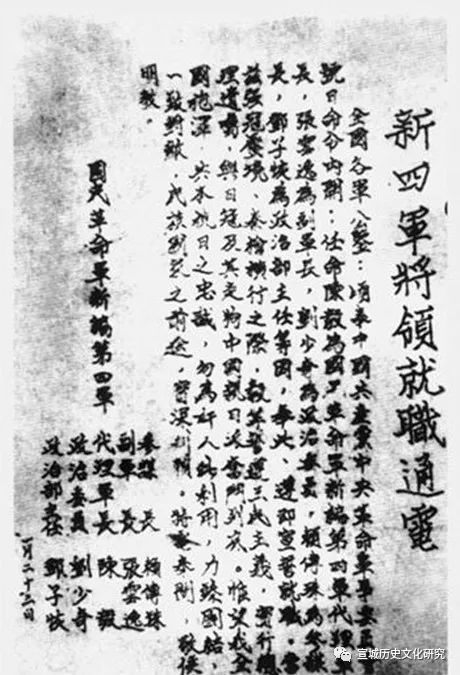 新四軍將領就職通電
全國各軍公鑒：頃奉中國共產黨中央革命軍事委員會
號日命令內開：任命陳毅為國民革命軍新編第四軍代理軍
長，張雲逸為副軍長，劉少奇為政治委員，賴傳珠為參謀
長，鄧子恢為政治部主任等因，奉此、遵即宣誓就職。當
茲強寇壓境、秦檜橫行之際，毅等誓遵三民主義，實行總
理遺囑，與日寇及其走狗中國親日派奮鬥到底。惟望我全
國袍澤，共本抗日之忠誠，勿為奸人所利用，力謀團結，
一致對敵，民族國家之前途，實深利賴。特電奉聞，敬候
明教。
國民革命軍新編第四軍
參謀長 賴傳珠
副軍長 張雲逸
代理軍長 陳毅
政治委員 劉少奇
政治部主任 鄧子恢
一月二十三日
宣城历史文化研究